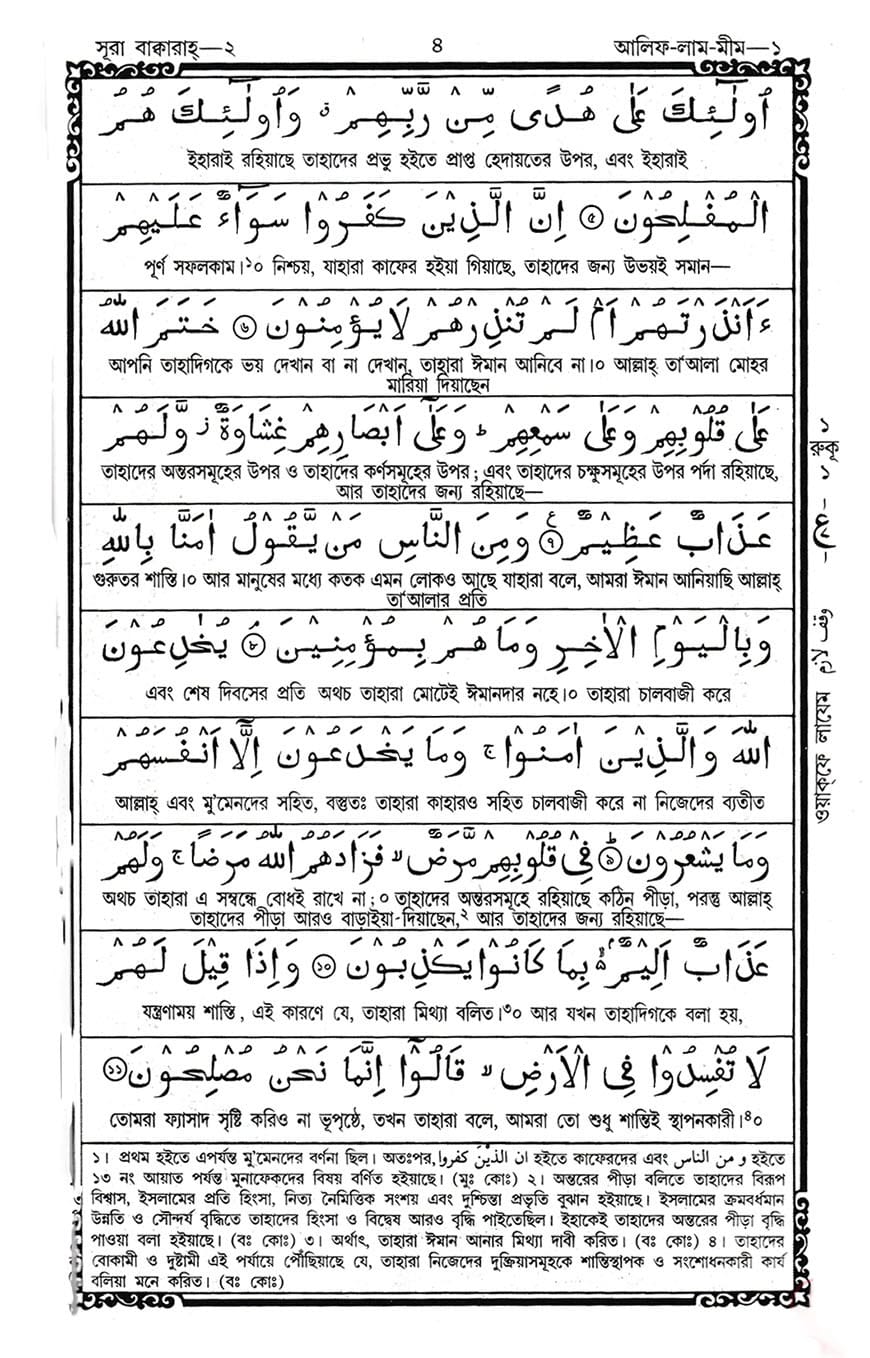 সূরা বাক্বারাহ্—২ ৪ আলিফ-লাম-মীম—১
اُولٰٓئِكَ عَلٰى هُدًى مِّنْ رَّبِّهِمْ ۙ وَاُولٰٓئِكَ هُمُ
ইহারাই রহিয়াছে তাহাদের প্রভু হইতে প্রাপ্ত হেদায়তের উপর, এবং ইহারাই
الْمُفْلِحُوْنَ ۝۵ اِنَّ الَّذِيْنَ كَفَرُوْا سَوَآءٌ عَلَيْهِمْ
পূর্ণ সফলকাম।১০ নিশ্চয়, যাহারা কাফের হইয়া গিয়াছে, তাহাদের জন্য উভয়ই সমান—
ءَاَنْذَرْتَهُمْ اَمْ لَمْ تُنْذِرْهُمْ لَا يُؤْمِنُوْنَ ۝۶ خَتَمَ اللّٰهُ
আপনি তাহাদিগকে ভয় দেখান বা না দেখান, তাহারা ঈমান আনিবে না।০ আল্লাহ্ তা'আলা মোহর
মারিয়া দিয়াছেন
عَلٰى قُلُوْبِهِمْ وَعَلٰى سَمْعِهِمْ ؕ وَعَلٰٓى اَبْصَارِهِمْ غِشَاوَةٌ ز وَّلَهُمْ
তাহাদের অন্তরসমূহের উপর ও তাহাদের কর্ণসমূহের উপর; এবং তাহাদের চক্ষুসমূহের উপর পর্দা রহিয়াছে,
আর তাহাদের জন্য রহিয়াছে—
عَذَابٌ عَظِيْمٌ ۝۷ ع وَمِنَ النَّاسِ مَنْ يَّقُوْلُ اٰمَنَّا بِاللّٰهِ
গুরুতর শাস্তি।০ আর মানুষের মধ্যে কতক এমন লোকও আছে যাহারা বলে, আমরা ঈমান আনিয়াছি আল্লাহ্
তা'আলার প্রতি
وَبِالْيَوْمِ الْاٰخِرِ وَمَا هُمْ بِمُؤْمِنِيْنَ ۝۸ يُخٰدِعُوْنَ
এবং শেষ দিবসের প্রতি অথচ তাহারা মোটেই ঈমানদার নহে।০ তাহারা চালবাজী করে
اللّٰهَ وَالَّذِيْنَ اٰمَنُوْا ۚ وَمَا يَخْدَعُوْنَ اِلَّآ اَنْفُسَهُمْ
আল্লাহ্ এবং মু'মেনদের সহিত, বস্তুতঃ তাহারা কাহারও সহিত চালবাজী করে না নিজেদের ব্যতীত
وَمَا يَشْعُرُوْنَ ۝۹ فِىْ قُلُوْبِهِمْ مَّرَضٌ ۙ فَزَادَهُمُ اللّٰهُ مَرَضًا ۚ وَلَهُمْ
অথচ তাহারা এ সম্বন্ধে বোধই রাখে না;০ তাহাদের অন্তরসমূহে রহিয়াছে কঠিন পীড়া, পরন্তু আল্লাহ্
তাহাদের পীড়া আরও বাড়াইয়া-দিয়াছেন,২ আর তাহাদের জন্য রহিয়াছে—
عَذَابٌ اَلِيْمٌ ۢ بِمَا كَانُوْا يَكْذِبُوْنَ ۝۱۰ وَاِذَا قِيْلَ لَهُمْ
যন্ত্রণাময় শাস্তি, এই কারণে যে, তাহারা মিথ্যা বলিত।৩০ আর যখন তাহাদিগকে বলা হয়,
لَا تُفْسِدُوْا فِى الْاَرْضِ ۙ قَالُوْٓا اِنَّمَا نَحْنُ مُصْلِحُوْنَ ۝۱۱
তোমরা ফ্যাসাদ সৃষ্টি করিও না ভূপৃষ্ঠে, তখন তাহারা বলে, আমরা তো শুধু শান্তিই স্থাপনকারী।৪০
১। প্রথম হইতে এপর্যন্ত মু'মেনদের বর্ণনা ছিল। অতঃপর, ان الذين كفروا হইতে কাফেরদের এবং و من الناس হইতে
১৩ নং আয়াত পর্যন্ত মুনাফেকদের বিষয় বর্ণিত হইয়াছে। (মুঃ কোঃ) ২। অন্তরের পীড়া বলিতে তাহাদের বিরূপ
বিশ্বাস, ইসলামের প্রতি হিংসা, নিত্য নৈমিত্তিক সংশয় এবং দুশ্চিন্তা প্রভৃতি বুঝান হইয়াছে। ইসলামের ক্রমবর্ধমান
উন্নতি ও সৌন্দর্য বৃদ্ধিতে তাহাদের হিংসা ও বিদ্বেষ আরও বৃদ্ধি পাইতেছিল। ইহাকেই তাহাদের অন্তরের পীড়া বৃদ্ধি
পাওয়া বলা হইয়াছে। (বঃ কোঃ) ৩। অর্থাৎ, তাহারা ঈমান আনার মিথ্যা দাবী করিত। (বঃ কোঃ) ৪। তাহাদের
বোকামী ও দুষ্টামী এই পর্যায়ে পৌঁছিয়াছে যে, তাহারা নিজেদের দুষ্ক্রিয়াসমূহকে শান্তিস্থাপক ও সংশোধনকারী কার্য
বলিয়া মনে করিত। (বঃ কোঃ)
১
রুকূ
১
ع
وقف لازم
ওয়াক্‌ফে লাযেম